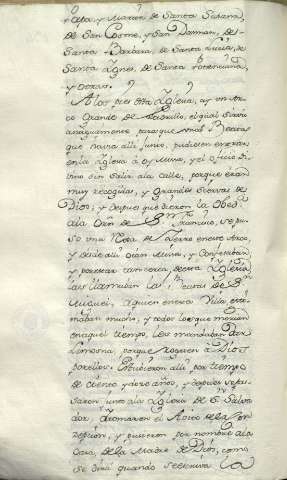 y Maria de Santa Susana,
de San Cosme, y San Damian, de
Santa Barbara, de Santa Lucia, de
Santa Ygnes, de Santa Potenciana,
y otras.
A los pies desta Yglesia, ay un Arco
Grande de ladrillo, el qual servia
antiguamente para que unas Beatas
que havia alli junto, pudiesen entrar
en la Yglesia à oyr Misa, y el oficio di
vino sin salir ala calle, porque eran
muy recogidas, y Grandes siervas de
Dios, y despues que dieron la obed.ª
ala Orn de S.n Francisco, se pu
so una Rexa de Yerro en este Arco,
y desde alli oian Misa, y Confesaban
y por estar tan cerca de esta Yglesia
las llamaban las Beatas de S.n
Miguel, aquien en esta Villa esti
maban mucho, y todos los que morian
en aquel tiempo, les mandaban dar
Limosna, porque rogasen à Dios
por ellos. Estuvieron alli por tiempo
de ciento y doze años, y despues se pa
saron junto ala Yglesia de S. Salva
dor, y tomaron el Avito de la Con
cepcion, y pusieron por nombre ala
Casa, de la Madre de Dios, como
se dirà quando se escriva la